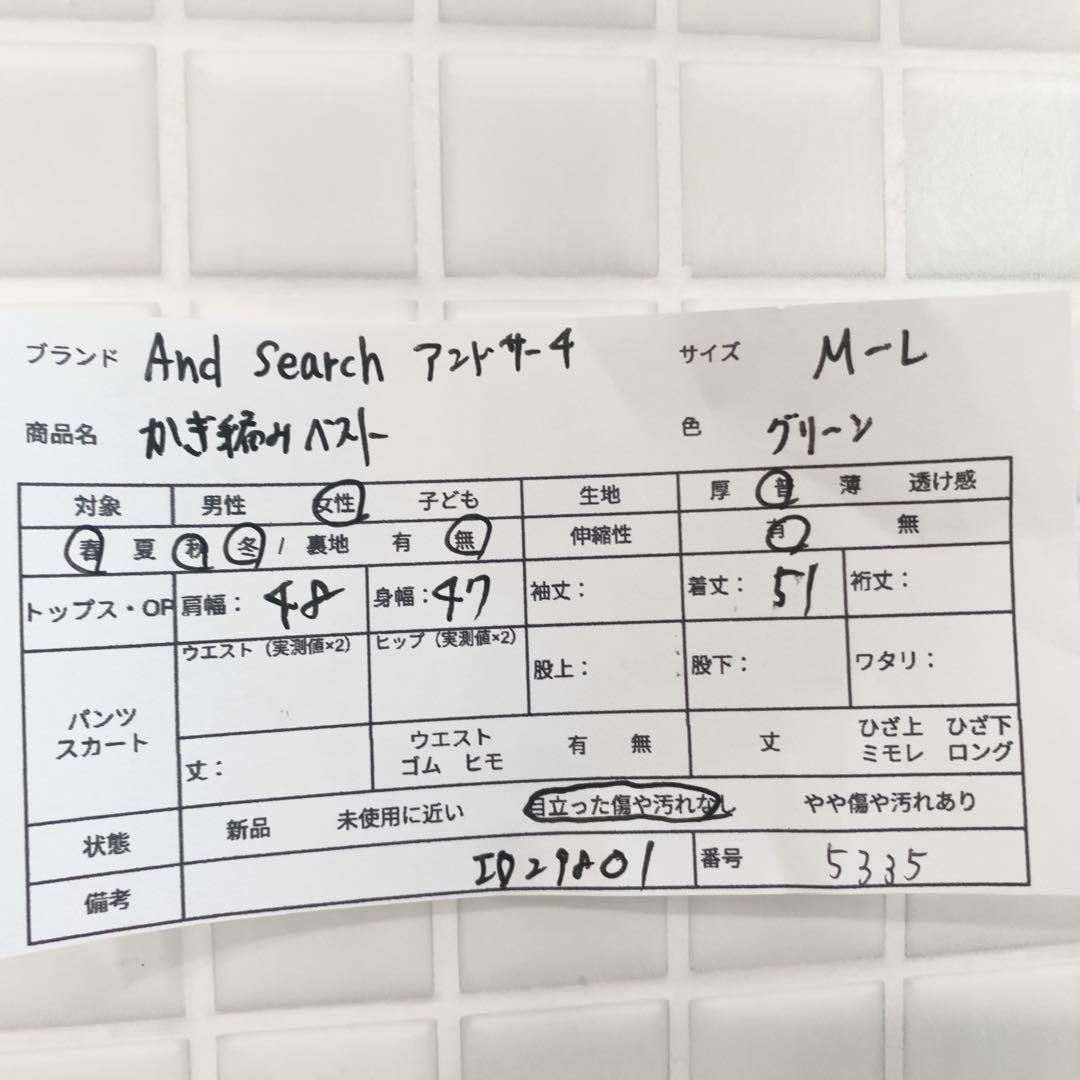 ブランド And Search アンドサーチ サイズ M-L
商品名 かぎ編みベスト 色 グリーン
対象 男性 女性 子ども 生地 厚 普 薄 透け感
春 夏 秋 冬 / 裏地 有 無 伸縮性 有 無
トップス・OP 肩幅： 48 身幅： 47 袖丈： 着丈： 51 裄丈：
パンツ スカート ウエスト（実測値×2） ヒップ（実測値×2） 股上： 股下： ワタリ：
丈： ウエスト ゴム ヒモ 有 無 丈 ひざ上 ひざ下 ミモレ ロング
状態 新品 未使用に近い 目立った傷や汚れなし やや傷や汚れあり
備考 番号 5335